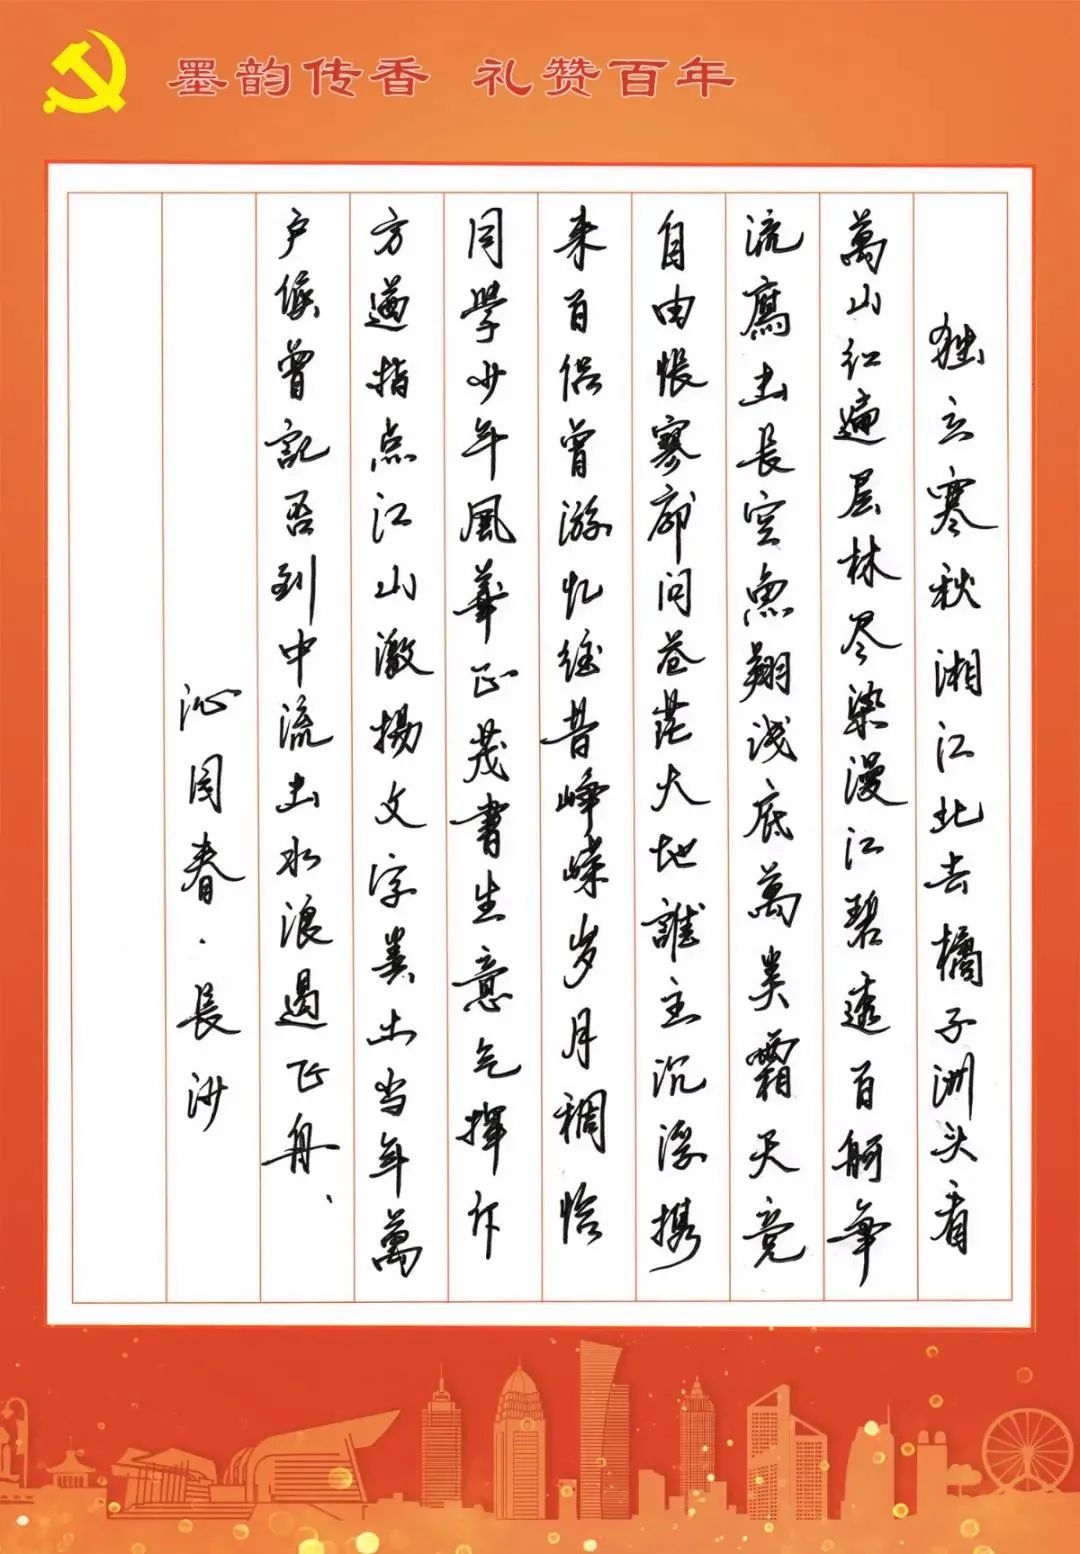 墨韵传香 礼赞百年
独立寒秋湘江北去橘子洲头看
萬山红遍层林尽染漫江碧透百舸争
流鹰击長空魚翔浅底萬类霜天竞
自由怅寥廓问苍茫大地誰主沉浮携
来百侣曾游忆往昔峥嵘岁月稠恰
同學少年風華正茂書生意气挥斥
方遒指点江山激揚文字粪土当年萬
户侯曾記否到中流击水浪遏飞舟、
沁园春·長沙